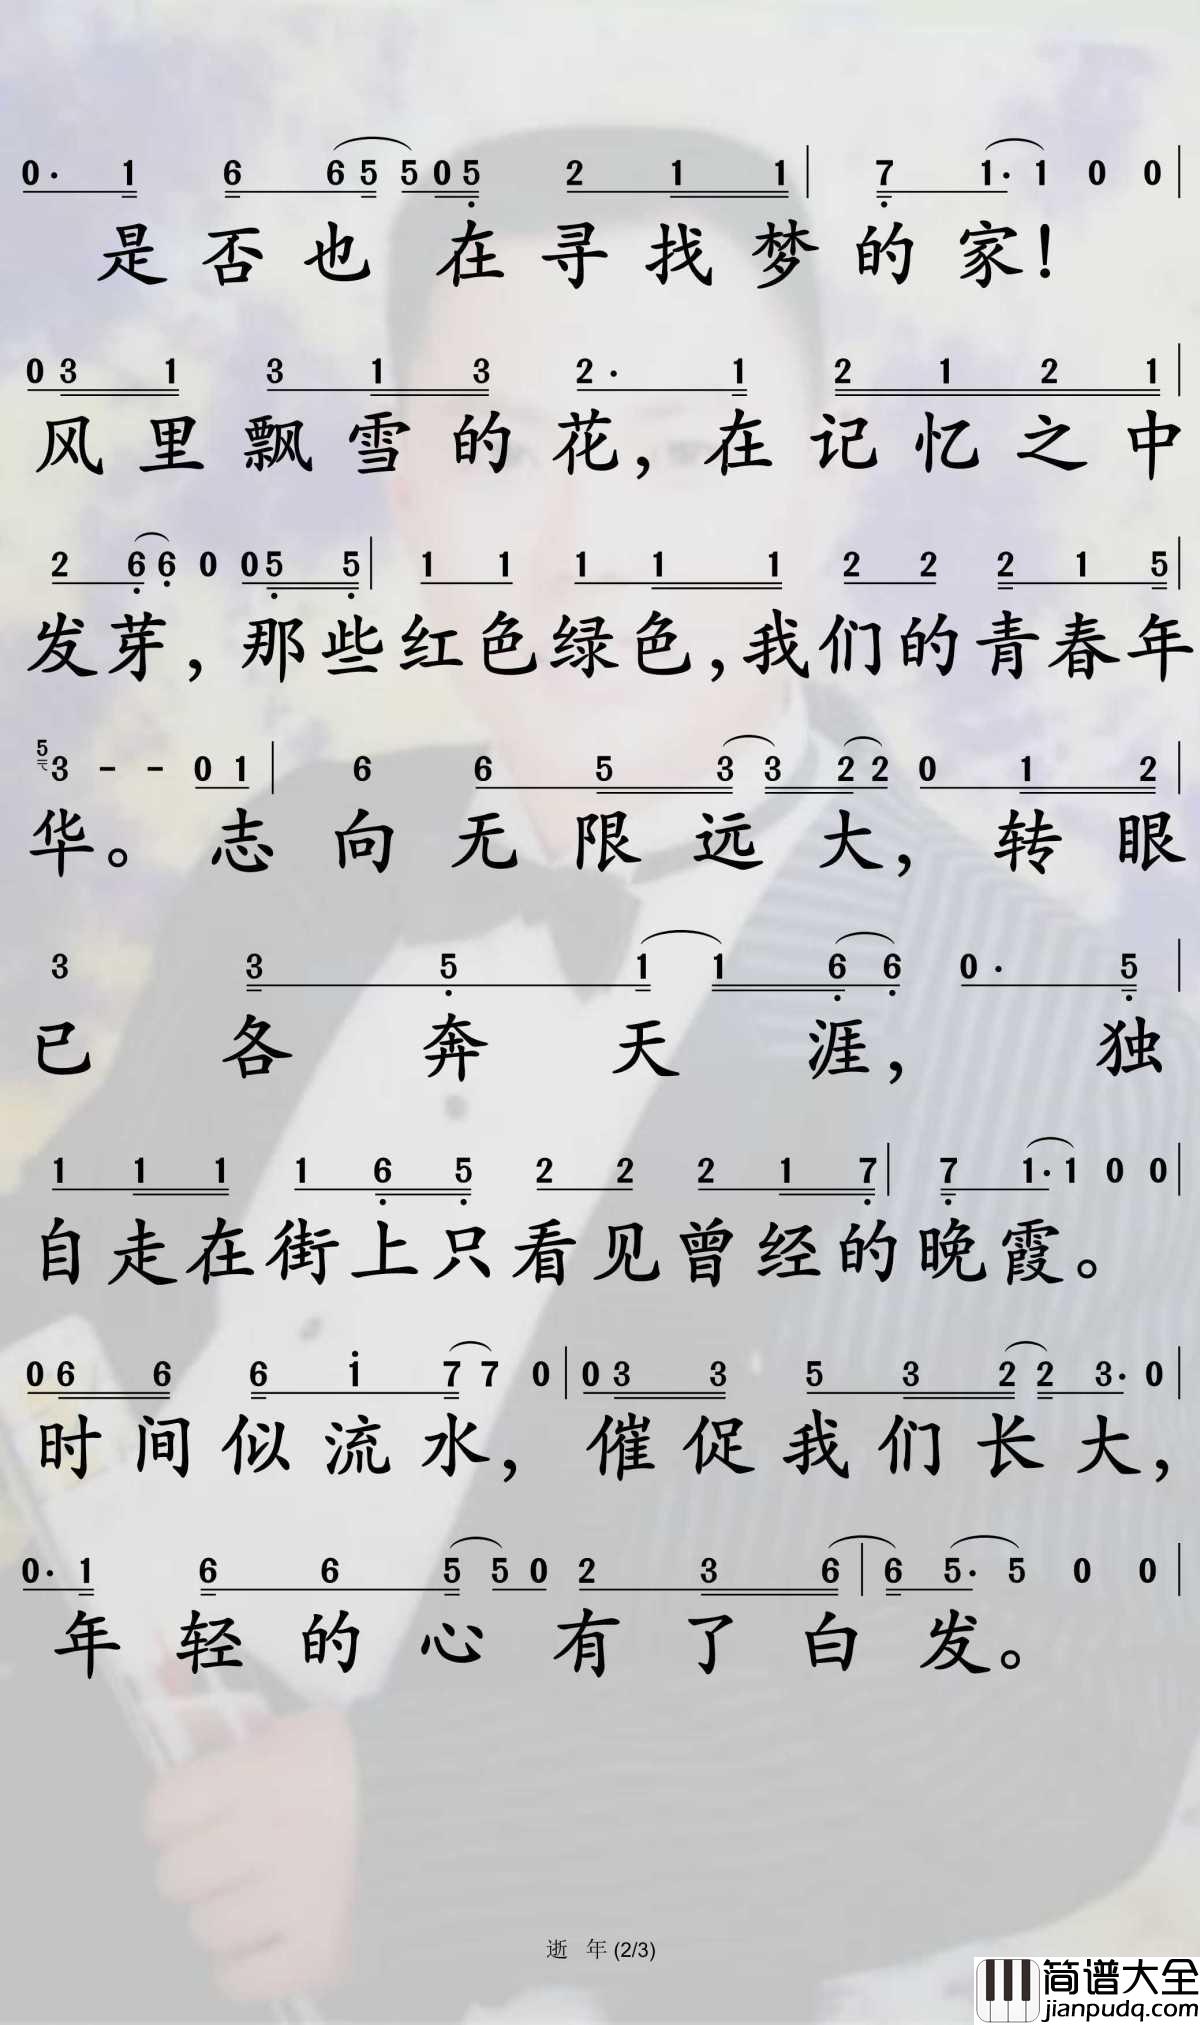 0· 1 6 6 5 5 0 5 2 1 1 | 7 1· 1 0 0 |
是否也在寻找梦的家!
0 3 1 3 1 3 2· 1 2 1 2 1 |
风里飘雪的花,在记忆之中
2 6 6 0 0 5 5 | 1 1 1 1 1 2 2 2 1 5 |
发芽,那些红色绿色,我们的青春年
5 3 - - 0 1 | 6 6 5 3 3 2 2 0 1 2 |
华。志向无限远大,转眼
3 3 5 1 1 6 6 0· 5 |
已各奔天涯,独
1 1 1 1 6 5 2 2 2 1 7 | 7 1· 1 0 0 |
自走在街上只看见曾经的晚霞。
0 6 6 6 i 7 7 0 | 0 3 3 5 3 2 2 3· 0 |
时间似流水,催促我们长大,
0· 1 6 6 5 5 0 2 3 6 | 6 5· 5 0 0 |
年轻的心有了白发。
逝 年 (2/3)
简谱大全
jianpudq.com